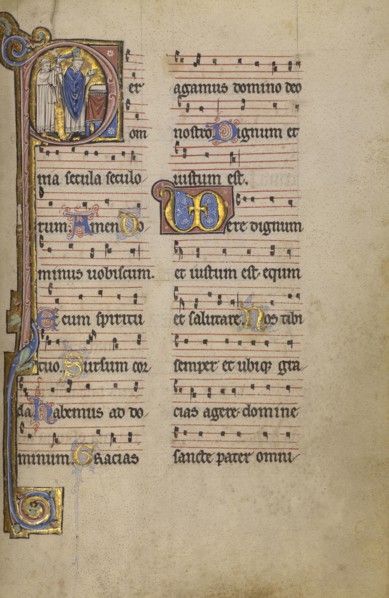 Per
om
nia secula seculo
rum. Amen. Do
minus uobiscum.
Et cum spiritu
tuo. Sursum cor
da. habemus ad do
minum. Gracias
agamus domino deo
nostro. Dignum et
iustum est.
Vere dignum
et iustum est equm
et salutare. Nos tibi
semper et ubiqꝫ gra
cias agere domine
sancte pater omni